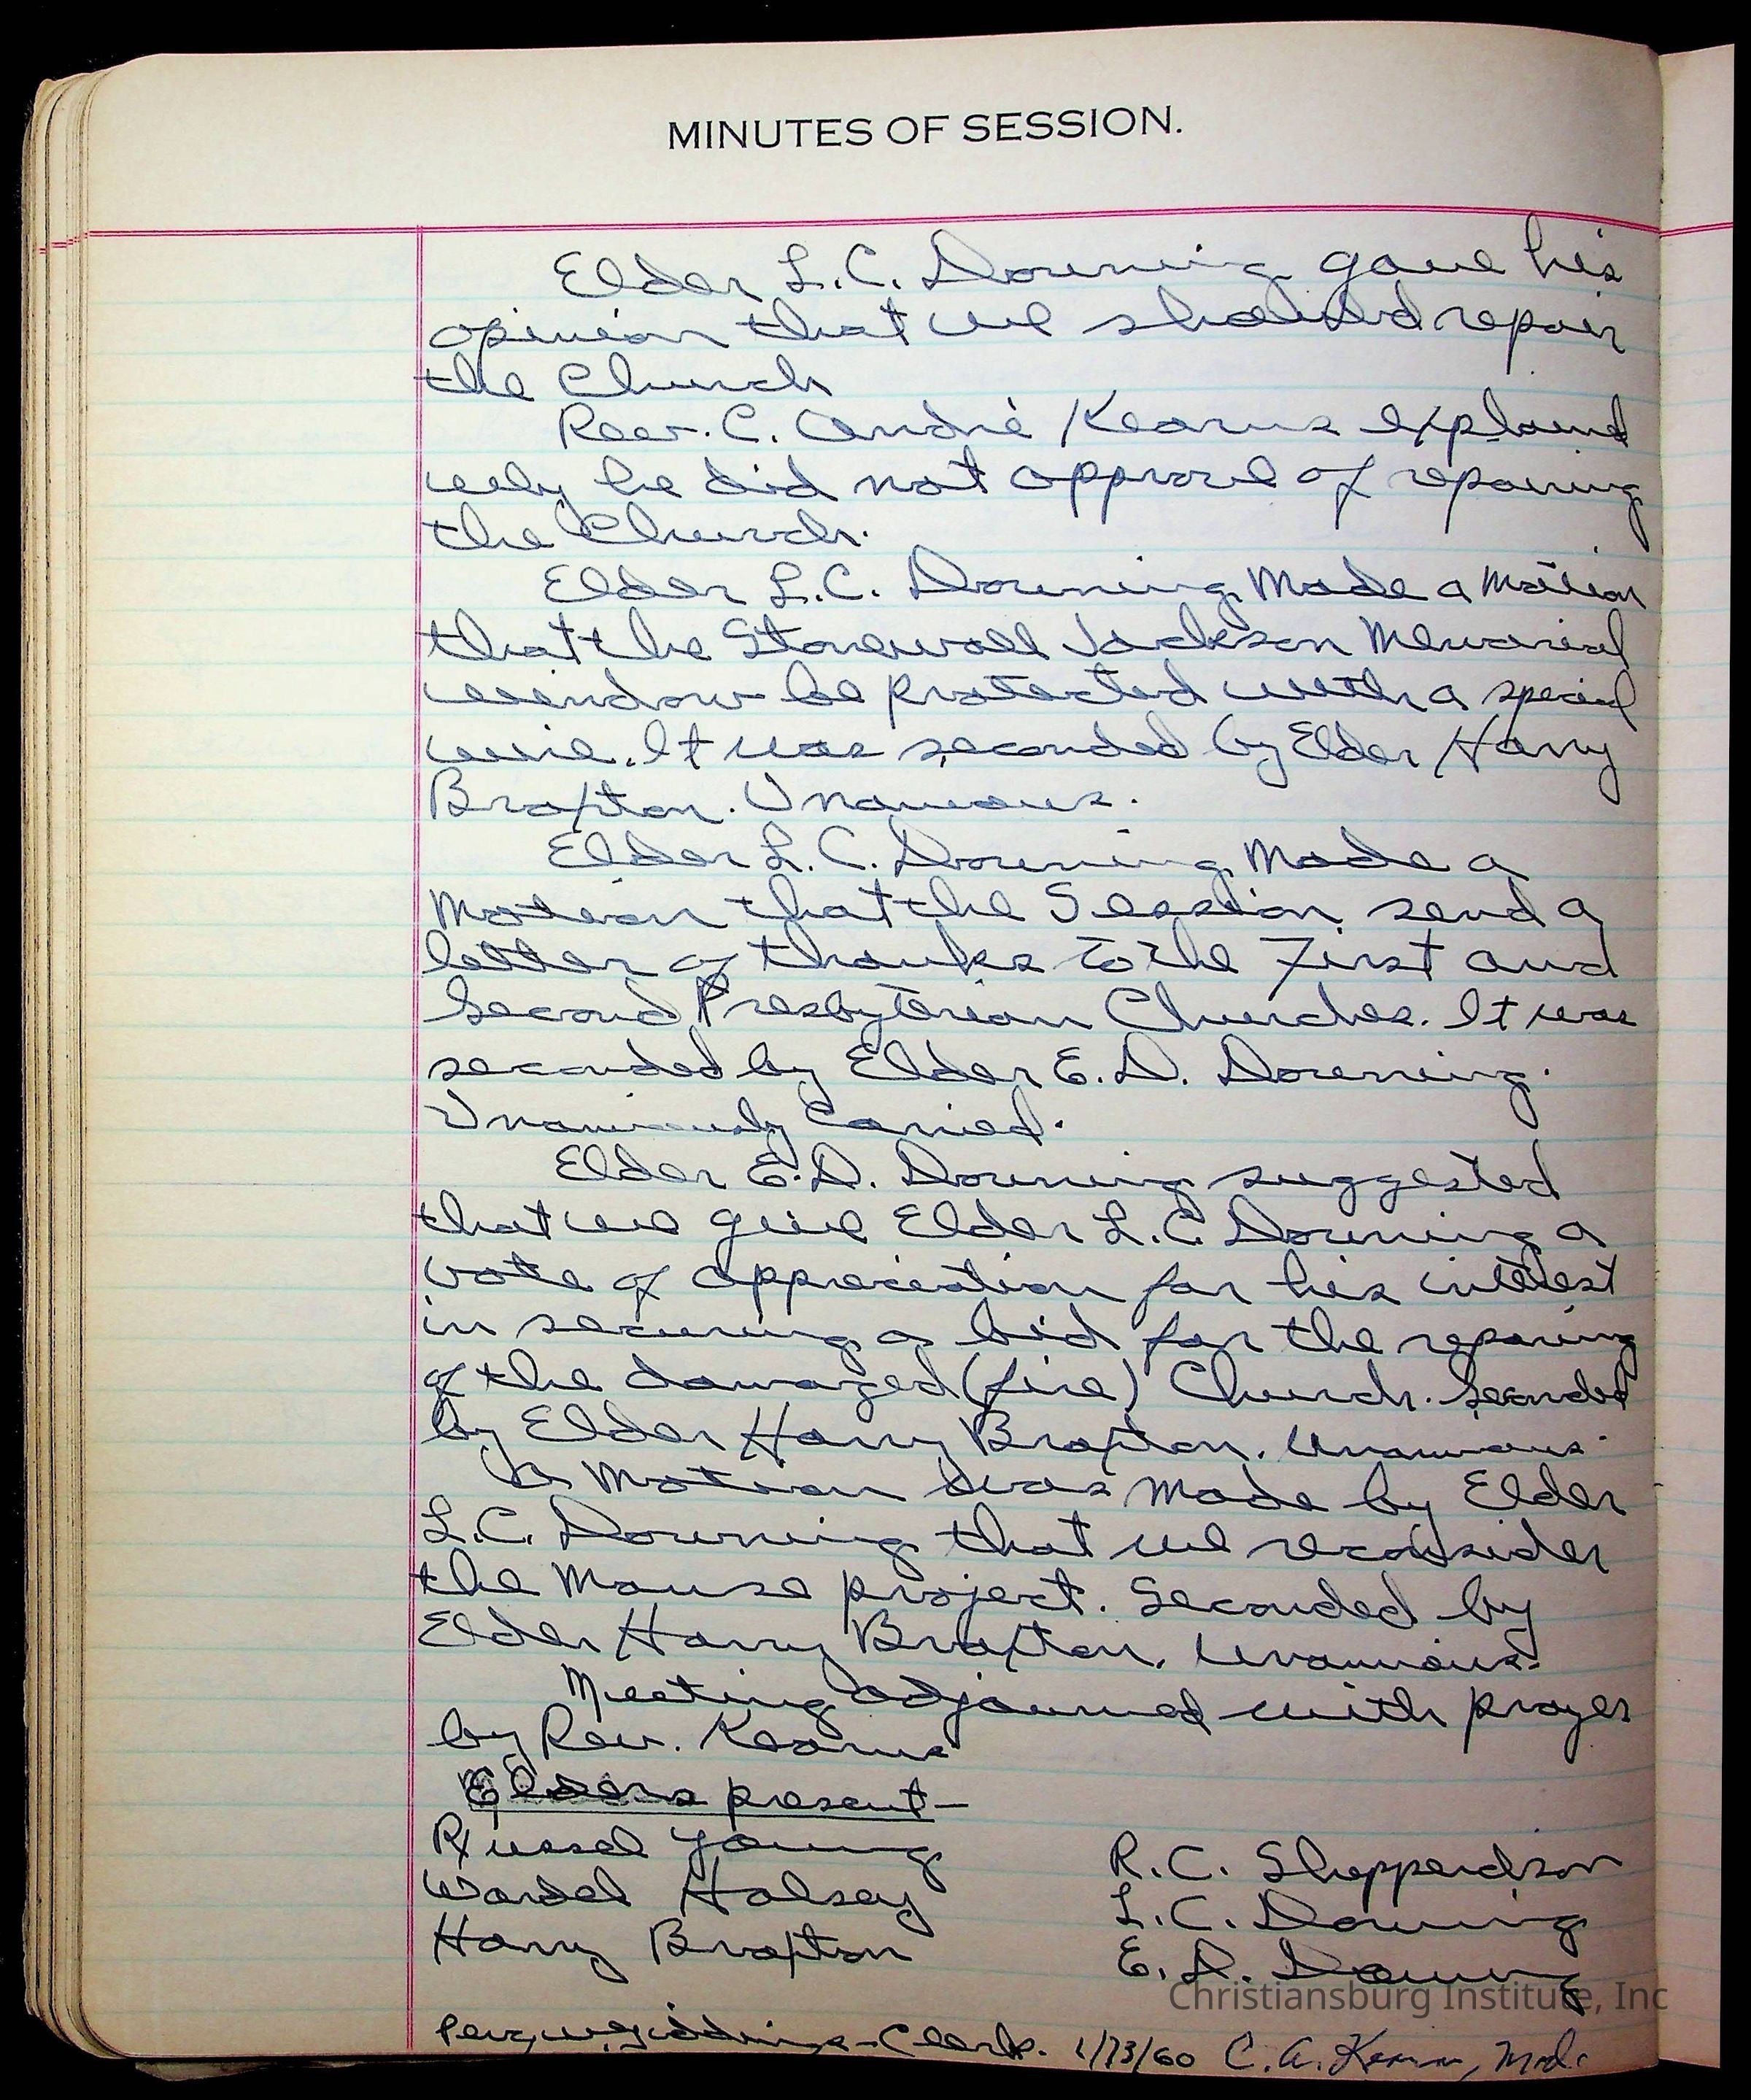 MINUTES OF SESSION.
Elder L.C. Downing gave his
opinion that we should repair
the Church
Rev. C. André Kearns explaind
why he did not approve of reparing
the Church.
Elder L.C. Downing Made a Motion
that the Stonewall Jackson Memorial
window be protected with a special
wire. It was seconded by Elder Harry
Braxton. Unamous.
Elder L.C. Downing Made a
Motion that the Session send a
letter of thanks to the First and
Second Presbyterian Churches. It was
seconded by Elder E.D. Downing.
Unamiously Carried.
Elder E.D. Downing suggested
that we give Elder L.C Downing a
vote of appreciation for his interest
in securing a bid for the reparing
of the damaged (fire) Church. Seconded
by Elder Harry Braxton. Unamious
A Motion was Made by Elder
L.C. Downing that we reconsider
the Manse project. Seconded by
Elder Harry Braxton. Unamious.
Meeting adjourned with prayer
by Rev. Kearns
Elders present-
Russel Young
R.C. Shepperdson
Wardel Halsey
L.C. Downing
Harry Braxton
E.D. Downing
Christiansburg Institute, Inc
Giddings-Clerk. 1/13/60 C.A. Kearns, Mod.